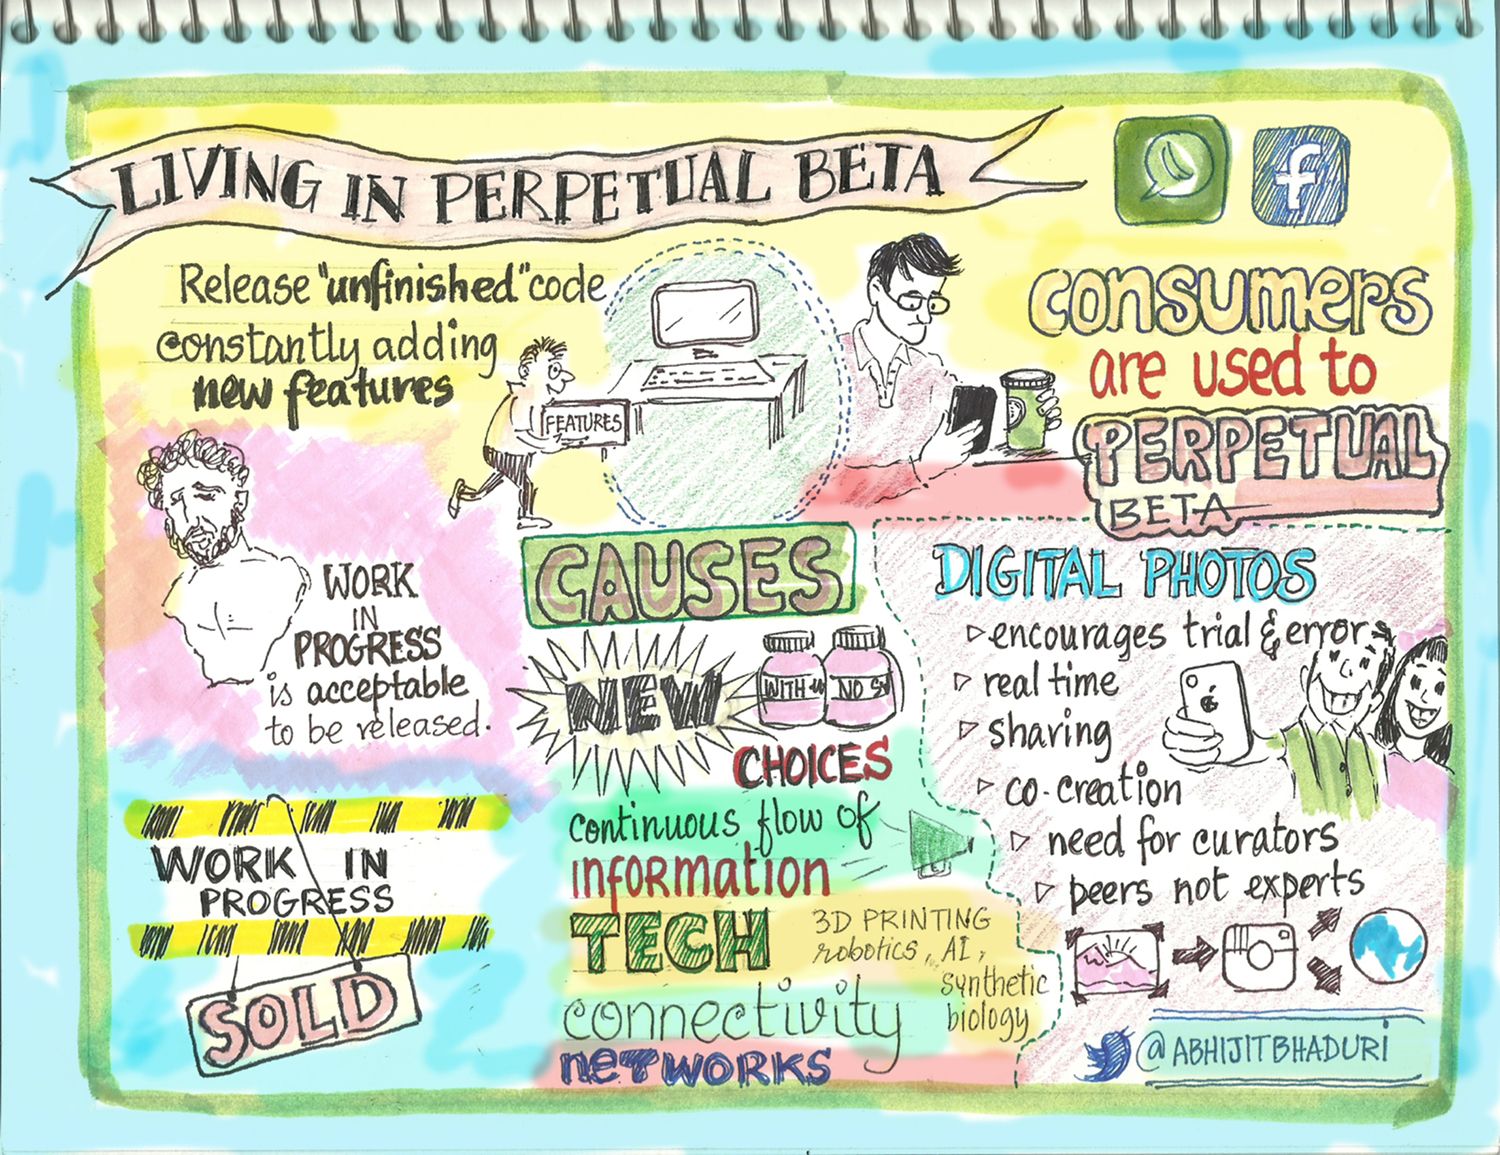 LIVING IN PERPETUAL BETA
f
Release "unfinished" code
constantly adding
new features
FEATURES
consumers
are used to
PERPETUAL
BETA
WORK
IN
PROGRESS
is acceptable
to be released.
WORK IN
PROGRESS
SOLD
CAUSES
NEW
WITH NO
CHOICES
continuous flow of
information
TECH
3D PRINTING
robotics, AI,
synthetic
biology
connectivity
networks
DIGITAL PHOTOS
encourages trial & error
real time
sharing
co-creation
need for curators
peers not experts
@ABHIJITBHADURI